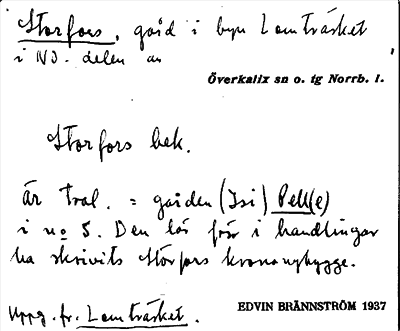 Storfors, gård i byn Lomträsket
i NO. delen av
Överkalix sn o. tg Norrb. l.
Storfors bek.
Är trol. = gården (Isi) Pell(e)
i no 5. Den lär för i handlingar
ha skrivits Storfors krononybygge.
Uppg. fr. Lomträsket.
EDVIN BRÄNNSTRÖM 1937